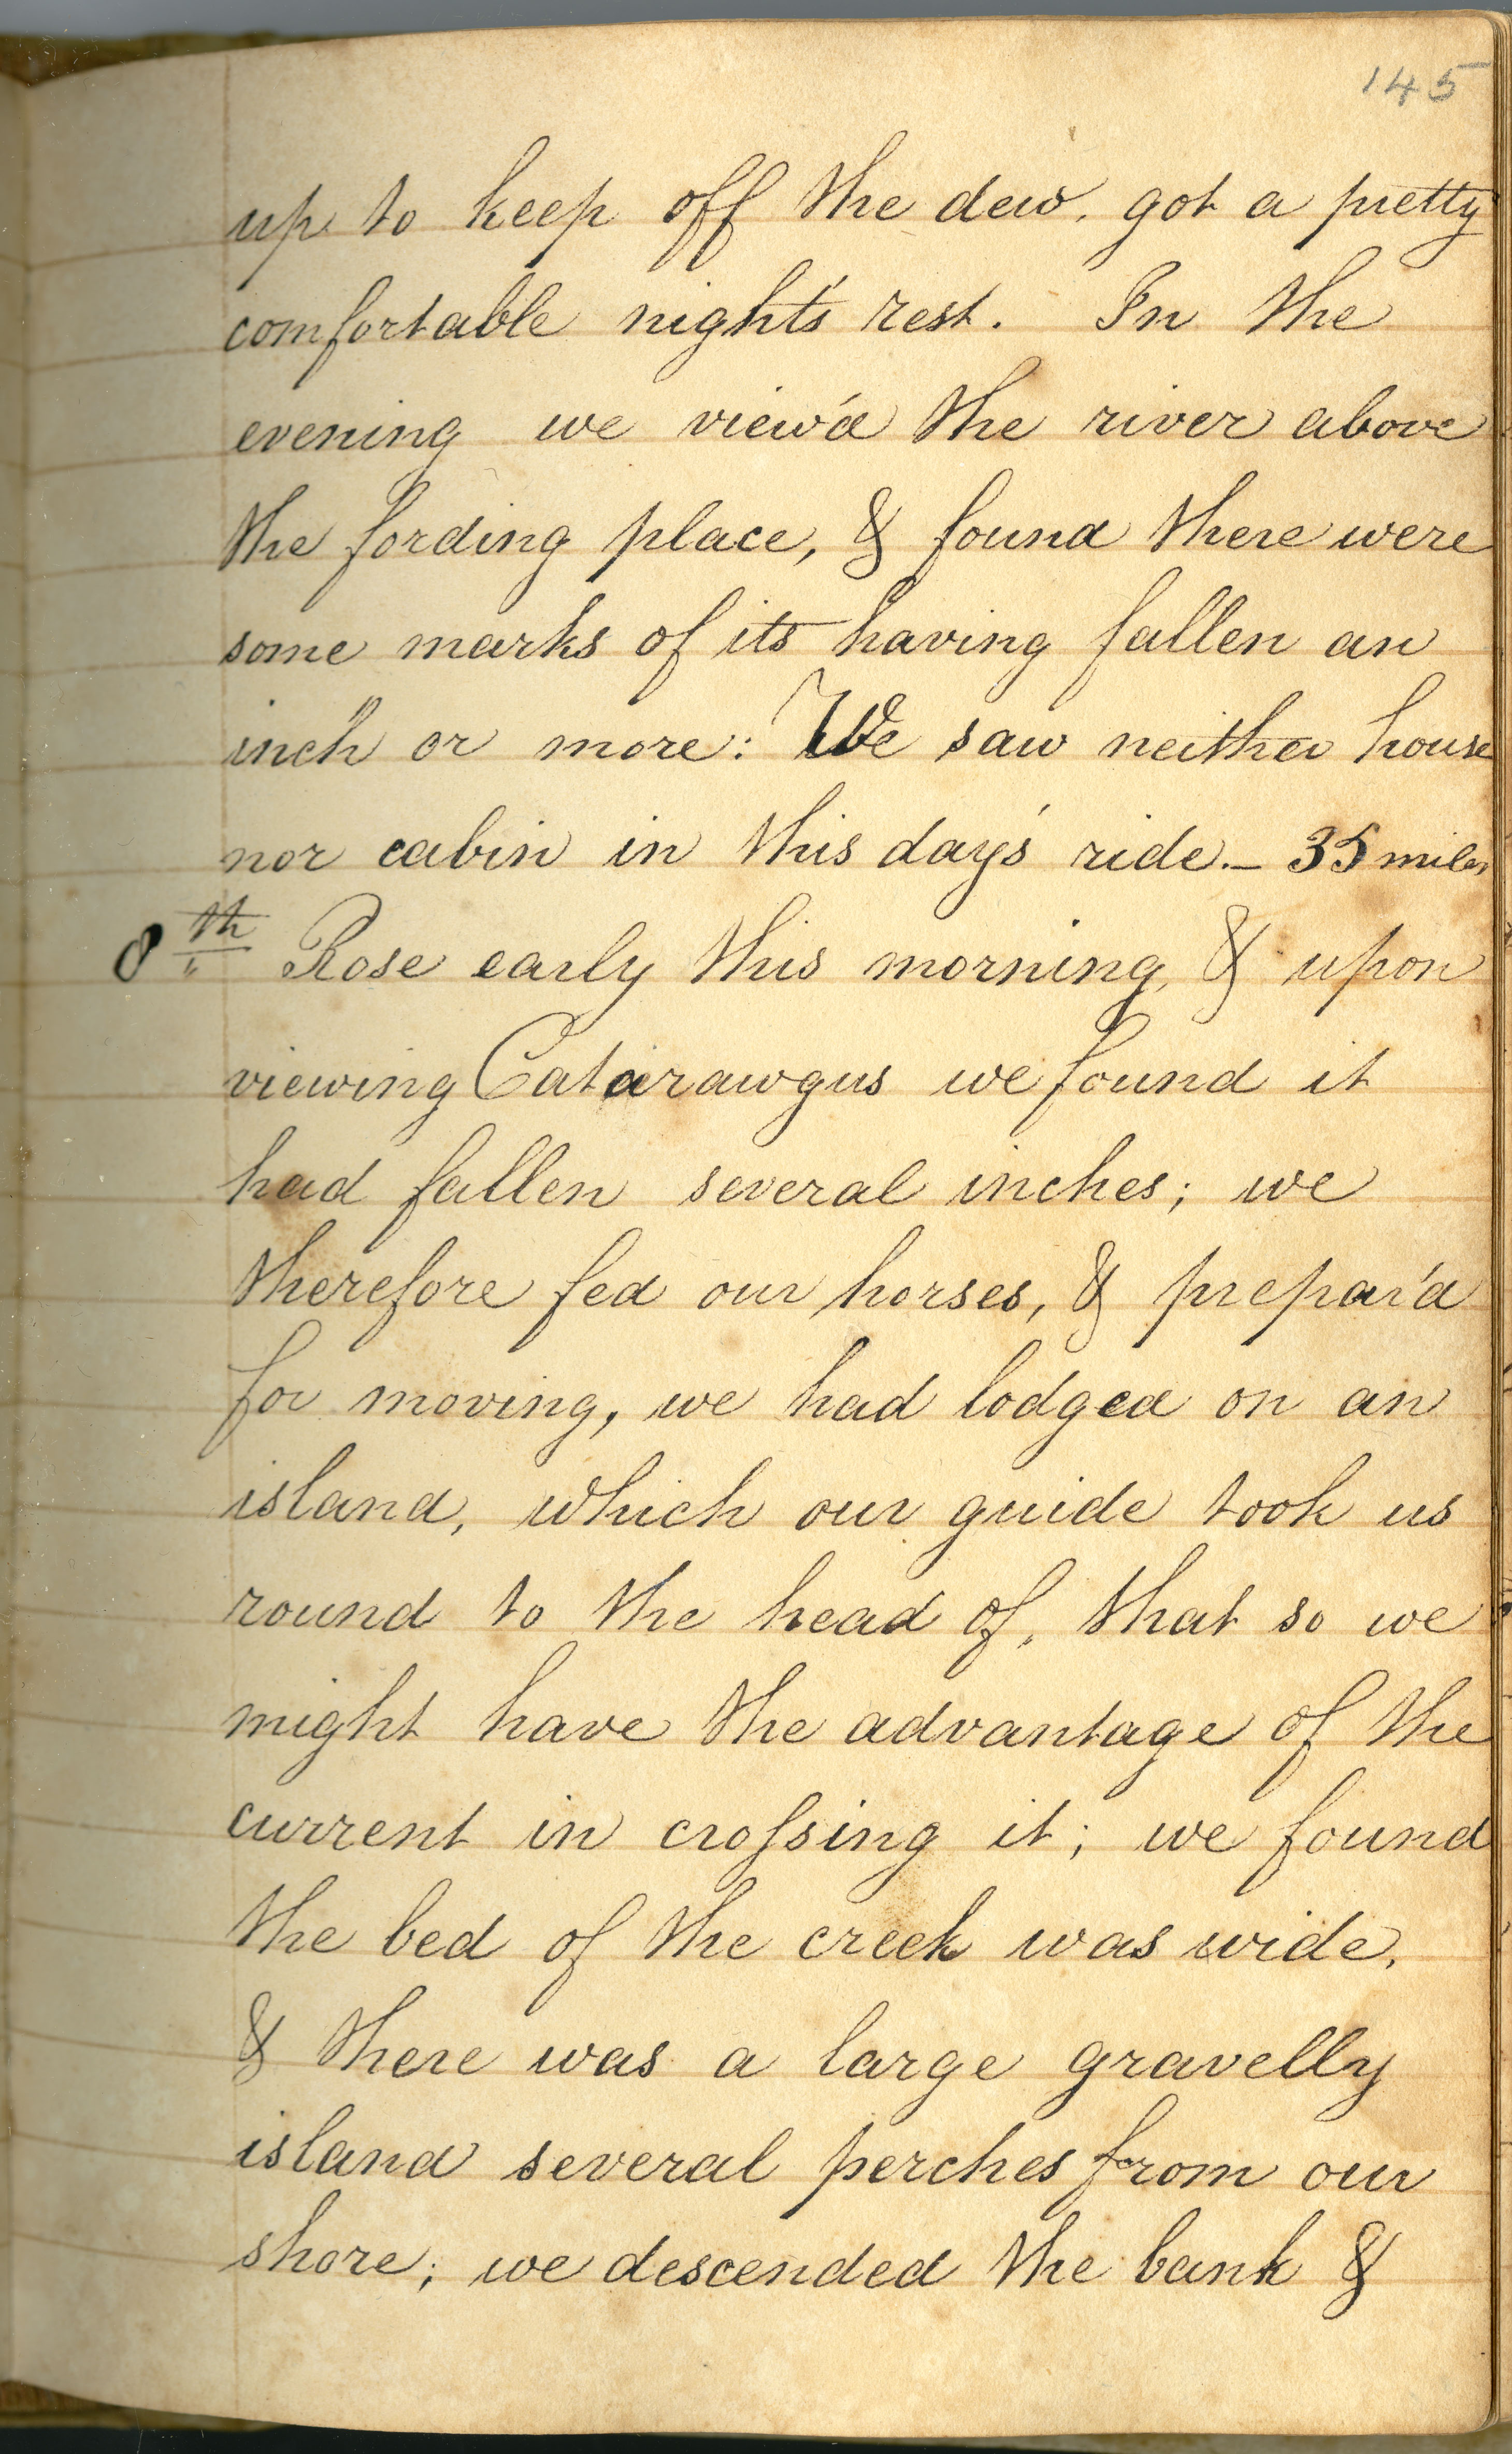 145
up to keep off the dew. got a pretty
comfortable night's rest. In the
evening we view'd the river above
the fording place, & found there were
some marks of its having fallen an
inch or more: We saw neither house
nor cabin in this day's ride. – 35 miles
8th Rose early this morning, & upon
viewing Catarawgus we found it
had fallen several inches; we
therefore fed our horses, & prepar'd
for moving, we had lodged on an
island, which our guide took us
round to the head of, that so we
might have the advantage of the
current in croſsing it; we found
the bed of the creek was wide,
& there was a large gravelly
island several perches from our
shore; we descended the bank &